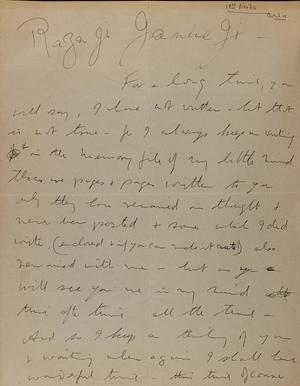 Raza Ji Janine Ji -
For a long time, you
will say, I have not written - but that
is not true - for I always keep on writing
in the memory file of my little mind
there are pages & pages written to you
only they have remained in thought &
never been posted & some which I did
write (enclosed if you can make it out) also
remained with me - but as you
will see you are in my mind
time after time all the time -
And so I keep on thinking of you
& wanting when again I shall have
wonderful time - this time of course